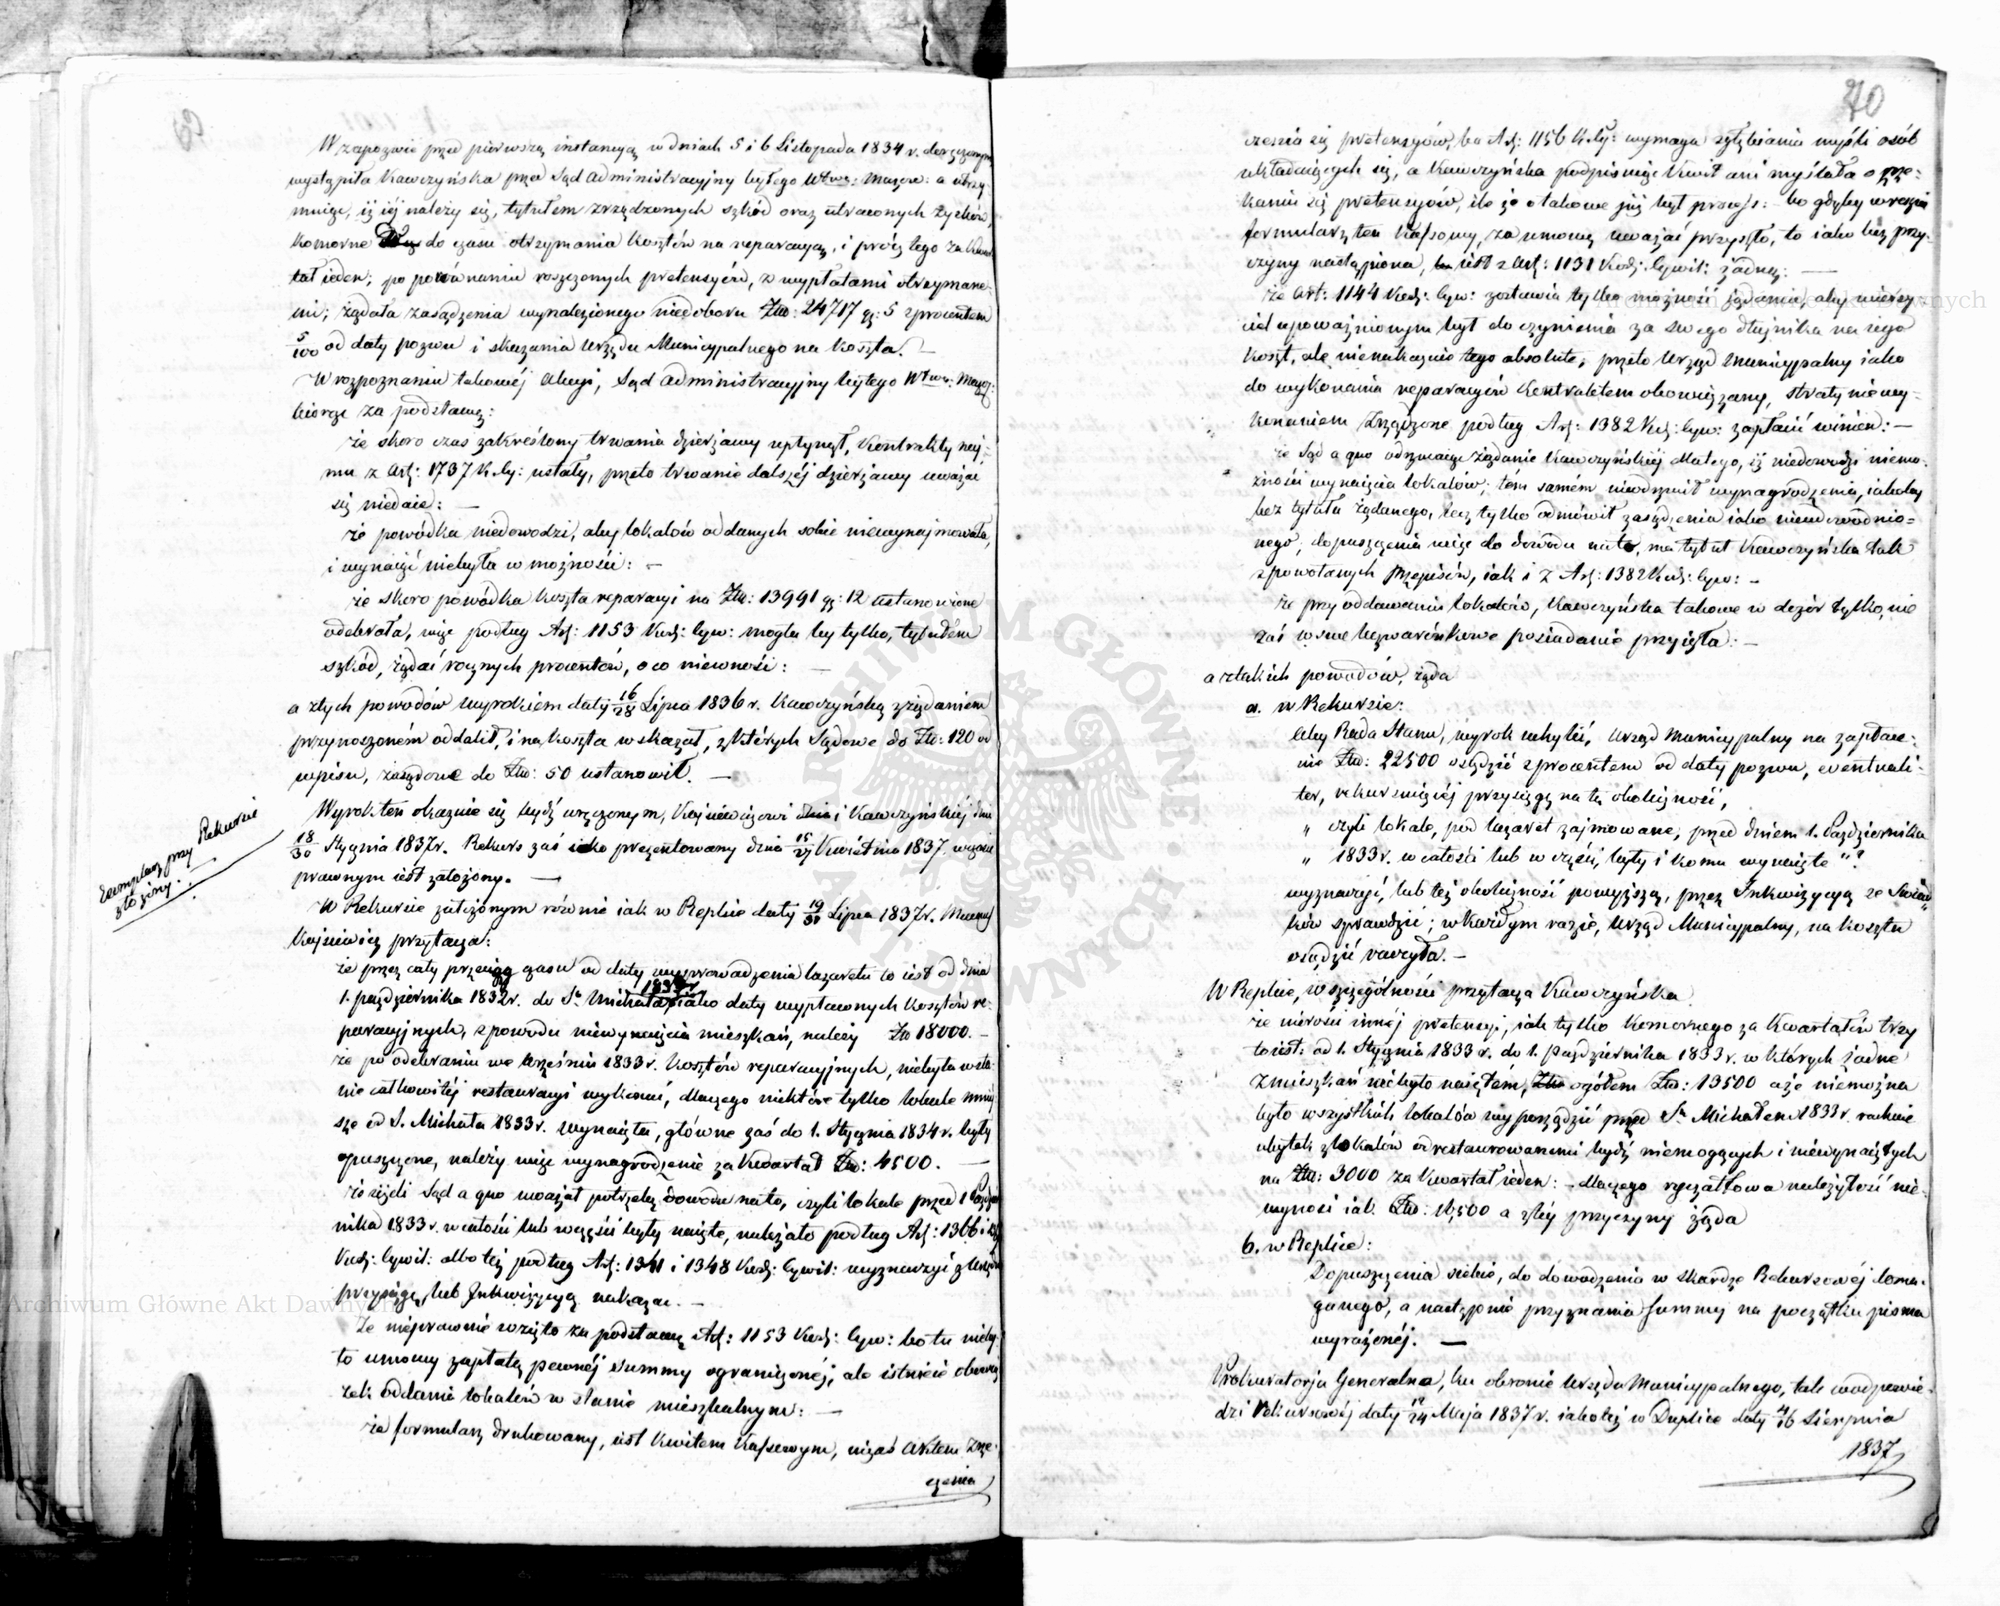 W zapozwie przed pierwszą instancyą w dniach 5 i 6 Listopada 1834 r. doręczonym
wystąpiła Kawczyńska przed Sąd Administracyjny byłego Wtwa: Mazow: a utrzy-
muiąc, iż iéj należy się, tytułem zrządzonych szkód oraz utraconych zysków,
komorne do czasu otrzymania kosztów na reparacyą, i prócz tego za kwar
tał ieden; po porównaniu roszczonych pretensyów, z wypłatami otrzymane-
mi; żądała zasądzenia wynalezionego niedoboru Złp: 24717 gr: 5 z procentem
5/100 od daty pozwu i skazania Urzędu Municypalnego na koszta. —
W rozpoznaniu takowéj akcyi, Sąd Administracyjny byłego Wtwa: Mazow:
biorąc za podstawę:
że skoro czas zakreślony trwania dzierżawy upłynął, kontrakty naj-
mu z Art: 1737 K. Cy: ustały, przeto trwanie dalszéj dzierżawy uważać
się niedaie: —
że powódka niedowodzi, aby lokalów oddanych sobie niewynajmowała,
i wynaiąć niebyła w możności: —
że skoro powódka koszta reparacyi na Złp: 13991 gr: 12 ustanowione
odebrała, więc podług Art: 1153 Kod: Cyw: mogła by tylko, tytułem
szkód, żądać rocznych procentów, o co niewnosi: —
a z tych powodów wyrokiem daty 16/28 Lipca 1836 r. Kawczyńską z żądaniem
przynoszoném oddalił, i na koszta wskazał, z których Sądowe do Złp: 120 od
wpisu, zarządone do Złp: 50 ustanowił. —
Wyrok ten okazuie się bydź wręczonym, Kajsiewiczowi i Kawczyńskiéj dnia
18/30 Stycznia 1837 r. Rekurs zaś iako prezentowany dnia 15/27 Kwietnia 1837. w czasie
prawnym iest założony. —
Exemplarz przy Rekursie
złożony.
W Rekursie założonym równie iak w Replice daty 19/31 Lipca 1837 r. Mecenas
Kajsiewicz przytacza:
że przez cały przeciąg czasu od daty wyprowadzenia lazaretu to iest od dnia
1. października 1832 r. do Sgo Michała 1833 r. iako daty wypłaconych kosztów re-
paracyjnych, z powodu niewynaięcia mieszkań, należy Złp 18000. —
że po odebraniu we Wrześniu 1833 r. kosztów reparacyjnych, niebyła w sta-
nie całkowitéj restauracyi wykonać, dlaczego niektóre tylko lokale mniej
sze od S. Michała 1833 r. wynaięła, główne zaś do 1. Stycznia 1834 r. były
opuszczone, należy więc wynagrodzenie za kwartał Złp: 4500. —
że ieżeli Sąd a quo uważał potrzebę dowodu na to, czyli lokale przed 1 Paździer
nika 1833 r. w całości lub w części były naięte, należało podług Art: 1366 i
Kod: Cywil: albo też podług Art: 1341 i 1348 Kod: Cywil: wyznaczyć z Urzędu
przysięgę, lub Inkwizycyą nakazać. —
że nieprawnie wzięto za podstawę Art: 1153 Kod: Cyw: bo tu nieby-
ło umowy zapłatą pewnéj summy ograniczonéj, ale istnieie obowią
zek oddania lokalów w stanie mieszkalnym: —
że formularz drukowany, iest kwitem kassowym, niezaś aktem zrze-
czenia
70
czenia się pretensyów, bo Art: 1156 K. Cy: wymaga zgłębiania myśli osób
układaiących się, a Kawczyńska podpisuiąc kwit ani myślała o zrze-
kaniu się pretensyów, ile że o takowe już był proces: — bo gdyby wreszcie
formularz ten kassowy, za umowę uważać przyszło, to iako bez przy-
czyny nastąpiona, iest z Art: 1131 Kod: Cywil: żadną: —
że Art: 1144 Kod: Cyw: zostawia tylko możność żądania, aby wierzy-
ciel upoważnionym był do czynienia za swego dłużnika na iego
koszt, ale nienakazuie tego absolute, przeto Urząd Municypalny iako
do wykonania reparacyów kontraktem obowiązany, straty niewy-
konaniem zrządzone podług Art: 1382 Kod: Cyw: zapłacić winien: —
że Sąd a quo odrzucaiąc żądanie Kawczyńskiéj dlatego, iż niedowodzi niemo-
żności wynaięcia lokalów; tém samém nieodrzucił wynagrodzenia, iakoby
bez tytułu żądanego, lecz tylko odmówił zasądzenia iako nieudowodnio-
nego, dopuszczenia więc do dowodu na to, ma tytuł Kawczyńska tak
z powołanych przepisów, iak i z Art: 1382 Kod: Cyw: —
że przy oddawaniu lokalów, Kawczyńska takowe w dozór tylko, nie
zaś w swe bezwarunkowe posiadanie przyięła: —
a z takich powodów, żąda
a. w Rekursie:
aby Rada Stanu, wyrok uchylić, Urząd Municypalny na zapłace-
nie Złp: 22500 osądzić z procentem od daty pozwu, eventuali-
ter, rekursuiącéj przysięgę na tę okoliczność,
„ czyli lokale, pod lazaret zajmowane, przed dniem 1. Października
„ 1833 r. w całości lub w części, były i komu wynaięte "?
wyznaczyć, lub też okoliczność powyższą, przez Inkwizycyą ze Świad-
ków sprawdzić; w każdym razie, Urząd Municypalny, na koszta
osądzić raczyła. —
W Replice, w szczególności przytacza Kawczyńska
że nierości innéj pretensyi, iak tylko komornego za kwartałów trzy
to iest: od 1. Stycznia 1833 r. do 1. Października 1833 r. w których żadne
z mieszkań niebyło naiętém, ogółem Złp: 13500 a że niemożna
było wszystkich lokalów wyporządzić przed Sm Michałem 1833 r. rachuie
ubytek z lokalów odrestaurowanemi bydź niemogących i niewynaiętych
na Złp: 3000 za kwartał ieden: — dlaczego ryczałtowa należytość wie-
wynosi iak Złp: 16,500 a z téj przyczyny żąda
b. w Replice:
Dopuszczenia siebie, do dowodzenia w skardze Rekursowéj doma-
ganego, a następnie przyznania summy na początku pisma
wyrażonéj. —
Prokuratorja Generalna, ku obronie Urzędu Municypalnego, tak w odpowie-
dzi Rekursowéj daty 12/24 Maja 1837 r. iakoteż w Duplice daty 4/16 Sierpnia
1837
Archiwum Główne Akt Dawnych